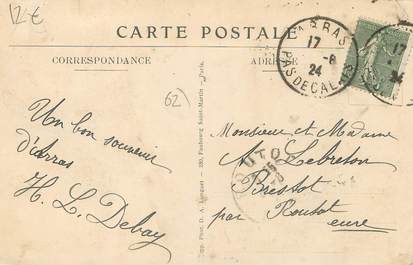 12 €
CARTE POSTALE
CORRESPONDANCE
ADRESSE
ARRAS
17 -8
24
PAS DE CALAIS
62
Un bon souvenir
d'Arras
H. L. Debay
Imp. Phot. D. A. Longuet — 250, Faubourg Saint-Martin — Paris.
Monsieur et Madame
Lebreton
Brestot
par Routot
eure
ROUTOT